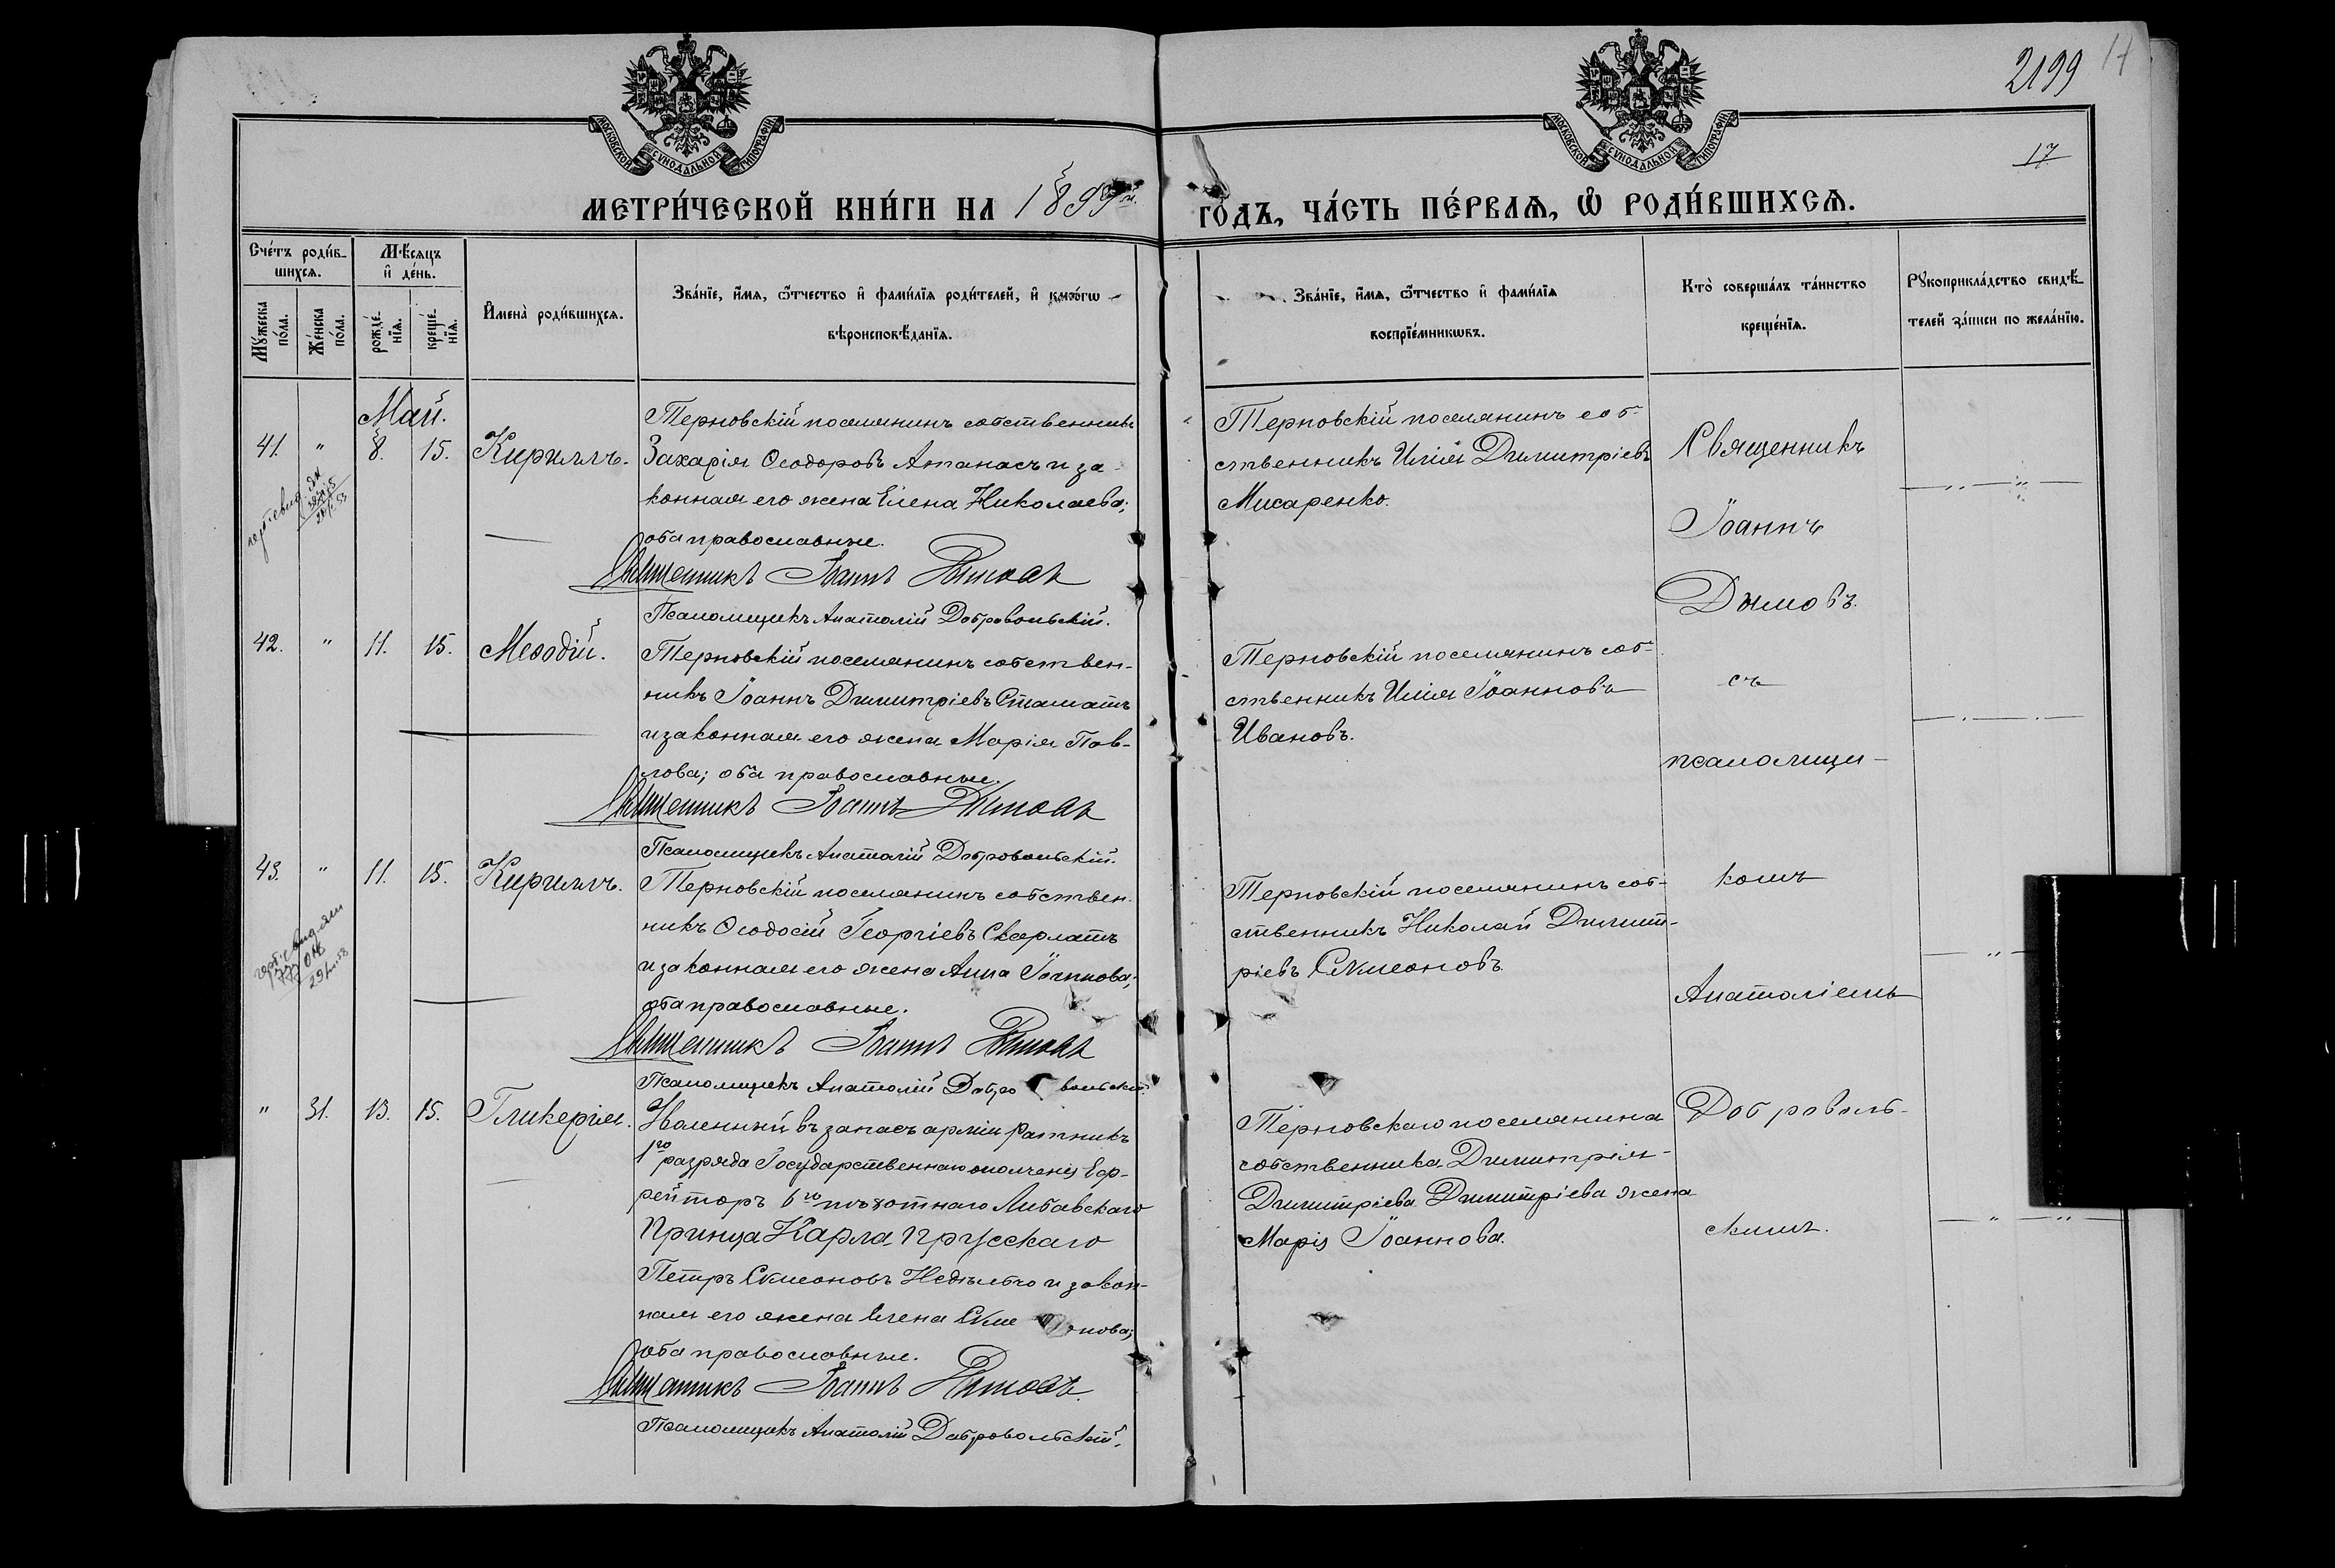 2199 14
17
МОСКОВСКОЙ СѴНОДАЛЬНОЙ ТИПОГРАФІИ
МОСКОВСКОЙ СѴНОДАЛЬНОЙ ТИПОГРАФІИ
МЕТРИ́ЧЕСКОЙ КНИ́ГИ НА 1899й. ГО́ДЪ, ЧА́СТЬ ПЕ́РВАѦ, Ѡ҆ РОДИ́ВШИХСѦ.
Сче́тъ роди́в-
шихсѧ.
Мꙋ́жеска
по́ла.
Же́нска
по́ла.
Мѣ́сѧцъ
и҆ де́нь.
рожде́-
нїѧ.
креще́-
нїѧ.
И҆мена̀ роди́вшихсѧ.
Зва́нїе, и҆́мѧ, ѻ҆́тчество и҆ фами́лїѧ роди́телей, и҆ како́гѡ
вѣроисповѣ́данїѧ.
Зва́нїе, и҆́мѧ, ѻ҆́тчество и҆ фами́лїѧ
воспрїе́мникѡвъ.
Кто̀ соверша́лъ та́инство
креще́нїѧ.
Рꙋкоприкла́дство свидѣ́-
телей за́писи по жела́нїю.
Май.
41. " 8. 15. Кириллъ.
Терновскій поселянинъ собственникъ
Захарія Ѳеодоровъ Атанасъ и за-
конная его жена Елена Николаева;
оба православные.
Священникъ Іоаннъ Дымовъ
Псаломщикъ Анатолій Добровольскій.
Терновскій поселянинъ соб-
ственникъ Илія Димитріевъ
Мисаренко.
Священникъ
Іоаннъ
Дымовъ
съ
псаломщи-
комъ
Анатоліемъ
Доброволь-
скимъ.
42. " 11. 15. Меѳодій.
Терновскій поселянинъ собствен-
никъ Іоаннъ Димитріевъ Стаматъ
и законная его жена Марія Пав-
лова; оба православные.
Священникъ Іоаннъ Дымовъ
Псаломщикъ Анатолій Добровольскій.
Терновскій поселянинъ соб-
ственникъ Илія Іоанновъ
Ивановъ.
43. " 11. 15. Кириллъ.
Терновскій поселянинъ собствен-
никъ Ѳеодосій Георгіевъ Скарлатъ
и законная его жена Анна Іоаннова;
оба православные.
Священникъ Іоаннъ Дымовъ
Псаломщикъ Анатолій Добровольскій.
Терновскій поселянинъ соб-
ственникъ Николай Димит-
ріевъ Сѵмеоновъ
" 31. 13. 15. Гликерія.
Уволенный въ запасъ арміи ратникъ
1го разряда Государственнаго ополченія Еф-
рейторъ 6го пѣхотнаго Либавскаго
Принца Карла Прусскаго
Петръ Сѵмеоновъ Недѣлько и закон-
ная его жена Елена Сѵмеонова;
оба православные.
Священникъ Іоаннъ Дымовъ.
Псаломщикъ Анатолій Добровольскій.
Терновскаго поселянина
собственника Димитрія
Димитріева Димитріева жена
Марія Іоаннова.